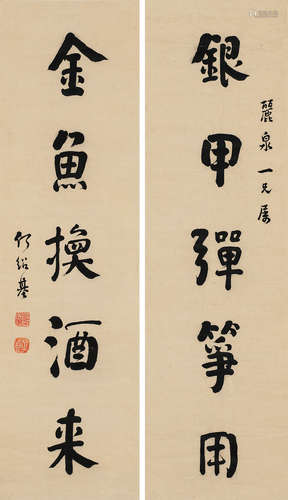 銀甲彈箏用
麗泉一兄屬
金魚換酒来
何紹基